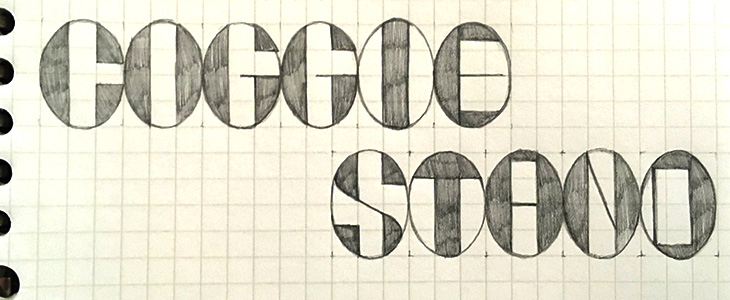 COGGIE
STAND